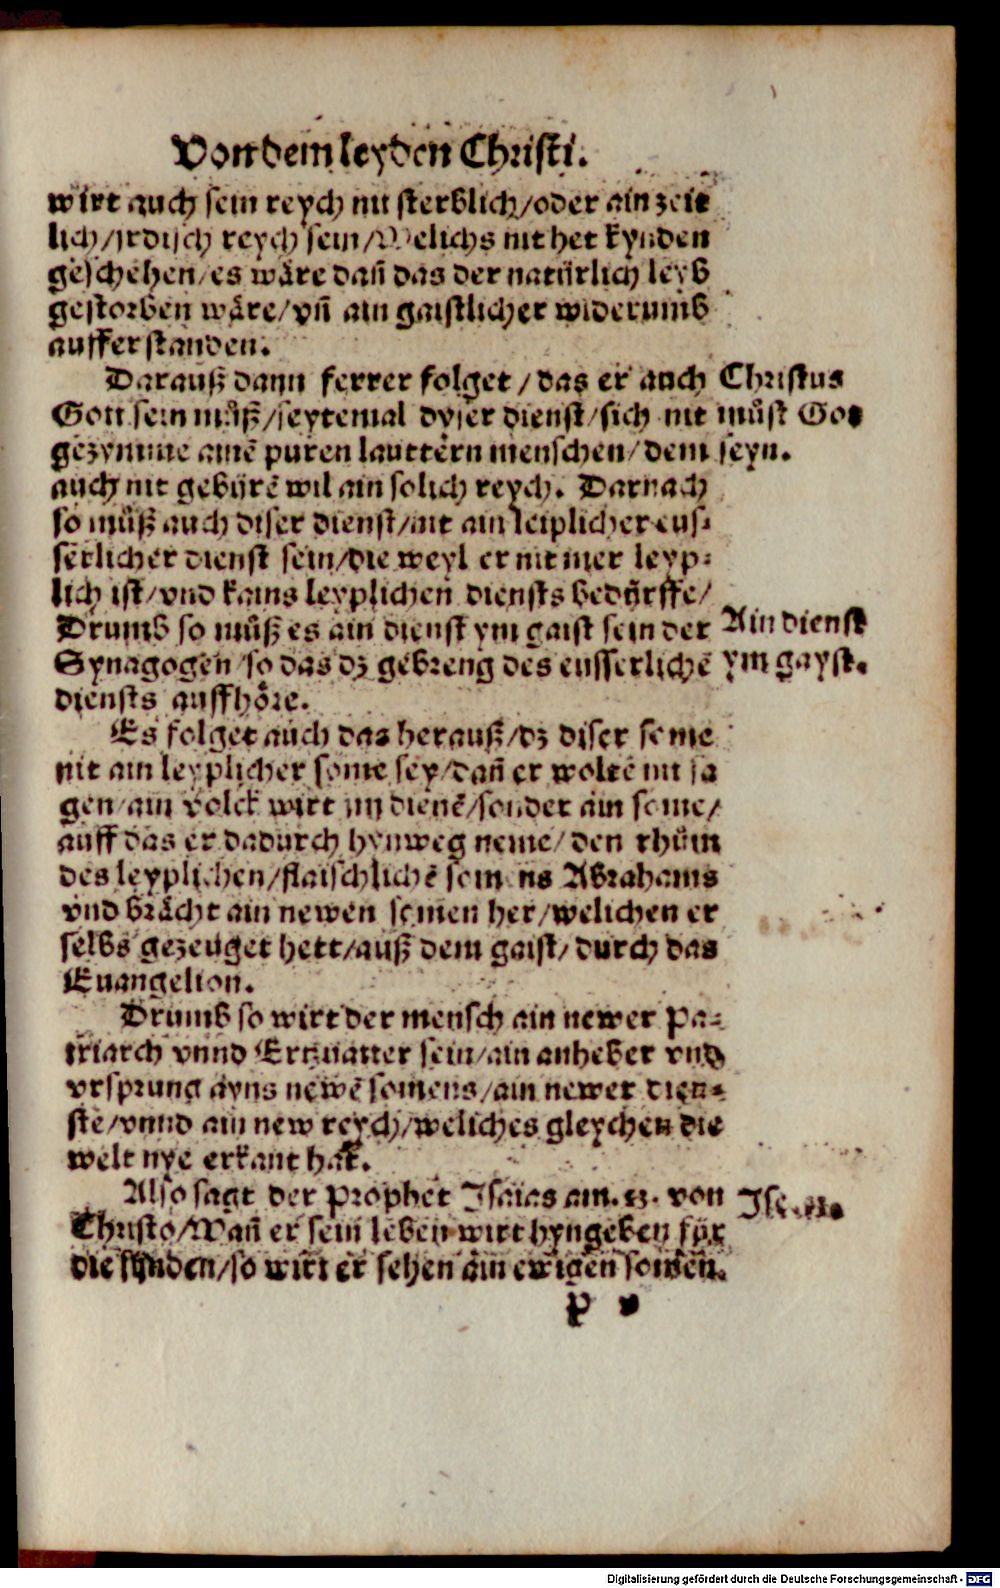 Von dem leyden Christi.
wirt auch sein reych nit sterblich/oder ain zeit
lich/jrdisch reych sein/Welichs nit het kynden
geschehen/es wåre dañ das der natürlich leyb
gestorben wåre/vñ ain gaistlicher widerumb
aufferstanden.
Darauß dann ferrer folget/das er auch
Gott sein můß/seytemal dyser dienst/sich nit
gezymme ainē puren lauttern menschen/dem
auch nit gebürē wil ain solich reych. Darnach
so můß auch diser dienst/nit ain leiplicher eus-
serlicher dienst sein/die weyl er nit mer leyp-
lich ist/vnd kains leyplichen diensts bedǒrffe/
Drumb so můß es ain dienst ym gaist sein der
Synagogen/so das dz gebreng des eusserlichē
diensts auffhǒre.
Christus
můst Got
seyn.
Ain dienst
ym gayst.
Es folget auch das herauß/dz diser some
nit ain leyplicher some sey/dañ er woltē nit sa
gen/ain volck wirt im dienē/sonder ain some/
auff das er dadurch hynweg neme/den rhům
des leyplichen/flaischlichē somens Abrahams
vnd brächt ain newen somen her/welichen er
selbs gezeuget hett/auß dem gaist/durch das
Euangelion.
Drumb so wirt der mensch ain newer Pa-
triarch vnnd Ertzuatter sein/ain anheber vnd
vrsprung ayns newē somens/ain newer dien-
ste/vnnd ain new reych/weliches gleychen die
welt nye erkant hat.
Also sagt der Prophet Isaias am. 53. von
Christo/Wañ er sein leben wirt hyngeben für
die sünden/so wirt er sehen ain ewigen somen.
P
Digitalisierung gefördert durch die Deutsche Forschungsgemeinschaft - DFG